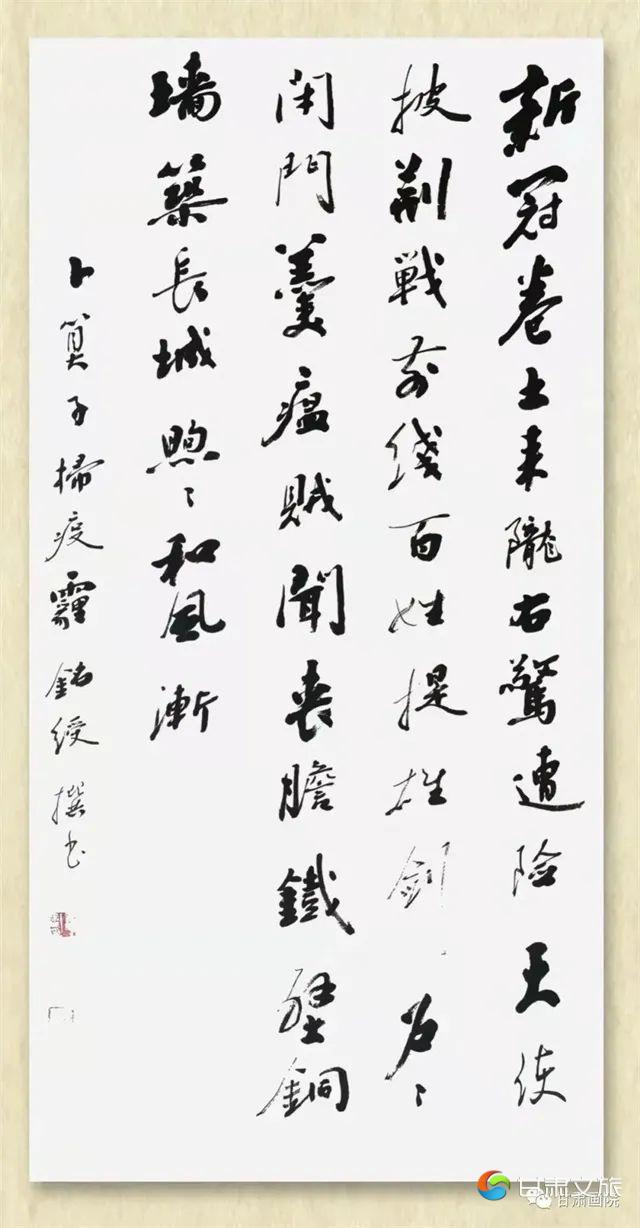 新冠卷土来隴右驚遭險天使
披荆戰前綫百姓提雄劍户〻
閉門羹瘟賊聞喪膽鐵壁銅
墙築長城煦〻和風漸
卜算子掃疫霾 綬撰书
甘肃文旅
甘肃画院